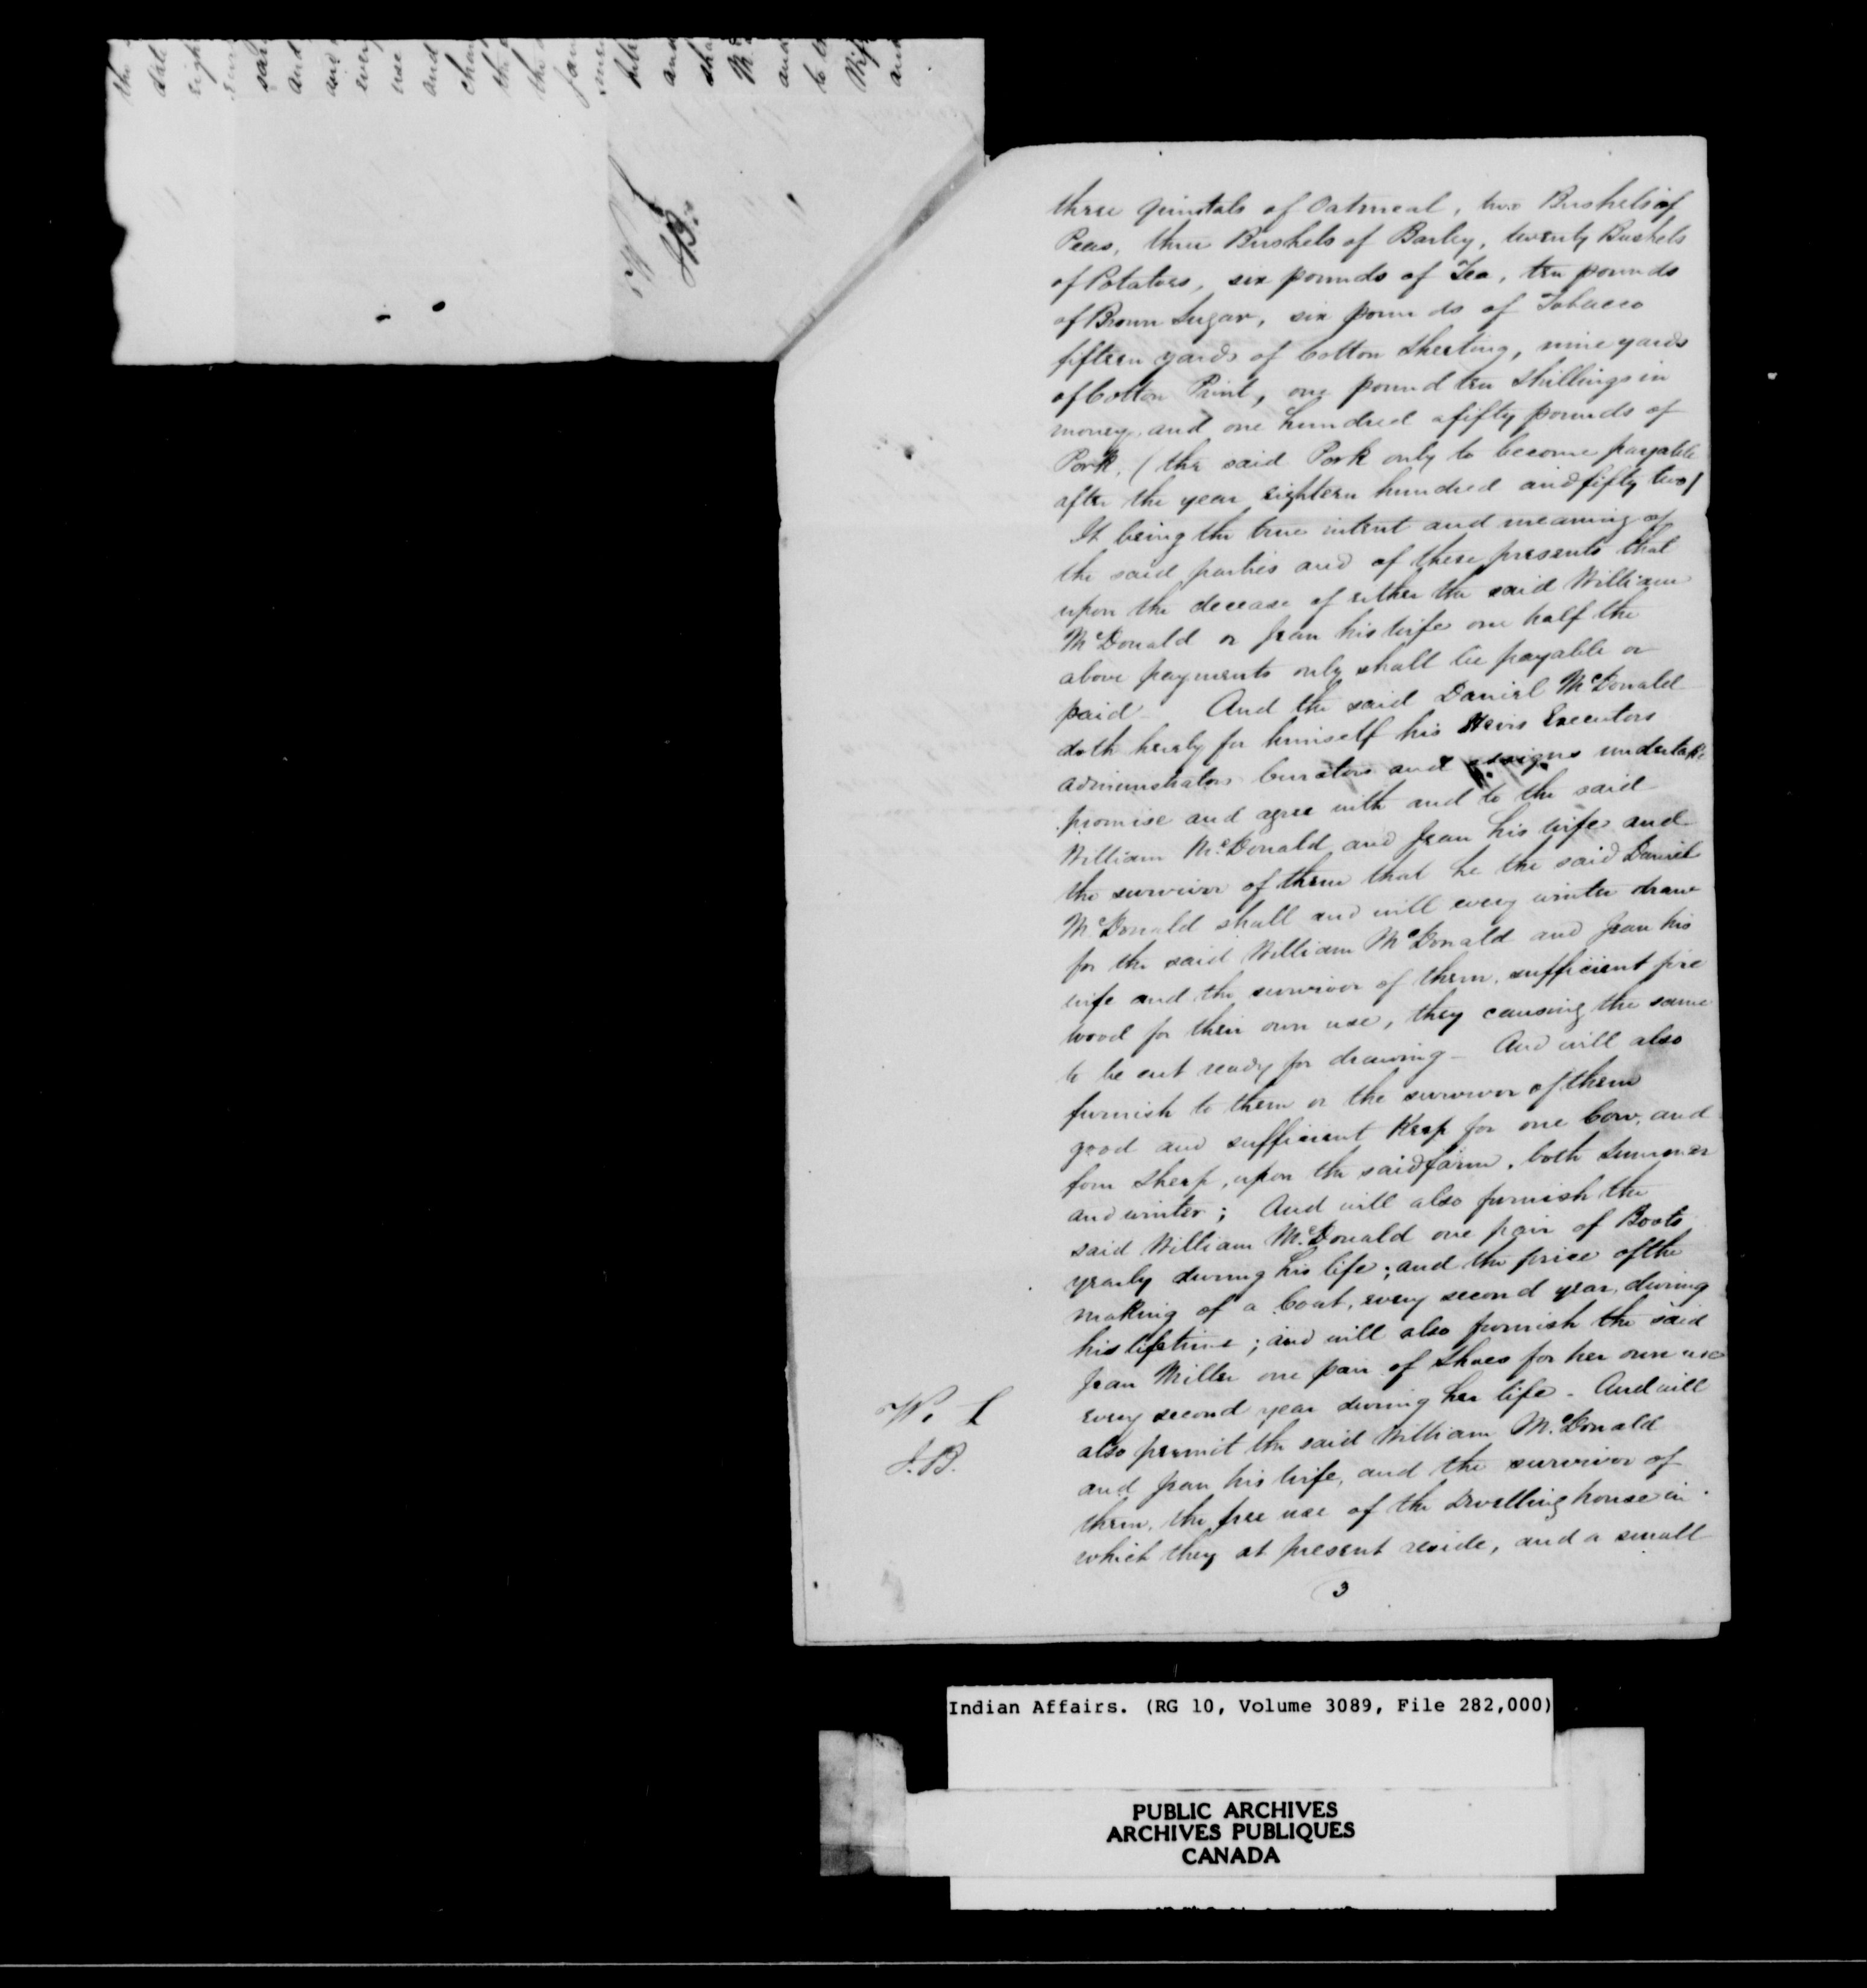 the
date
eigh
sai
and
and
every
use
and
chan
the
the
Jan
and
sha
Mc
and
to
Wife
and
W L
J.B.
three quintals of Oatmeal, two Bushels of
Peas, three Bushels of Barley, twenty Bushels
of Potatoes, six pounds of Tea, ten pounds
of Brown Sugar, six pounds of Tobacco
fifteen yards of Cotton Sheeting, nine yards
of Cotton Print, one pound ten Shillings in
money, and one hundred & fifty pounds of
Pork, (the said Pork only to become payable
after the year eighteen hundred and fifty two)
It being the true intent and meaning of
the said parties and of these presents that
upon the decease of either the said William
McDonald or Jean his wife one half the
above payments only shall be payable or
paid — And the said Daniel McDonald
doth hereby for himself his Heirs Executors
administrators Curators and assigns undertake
promise and agree with and to the said
William McDonald and Jean his wife and
the survivor of them that he the said Daniel
McDonald shall and will every winter draw
for the said William McDonald and Jean his
wife and the survivor of them, sufficient fire
wood for their own use, they causing the same
to be cut ready for drawing — And will also
furnish to them or the survivor of them
good and sufficient Keep for one Cow, and
four Sheep, upon the said farm, both Summer
and winter; And will also furnish the
said William McDonald one pair of Boots
yearly during his life; and the price of the
making of a Coat, every second year, during
his lifetime; and will also furnish the said
Jean Miller one pair of Shoes for her own use
every second year during her life — And will
also permit the said William McDonald
and Jean his wife, and the survivor of
them, the free use of the Dwelling house in
which they at present reside, and a small
W. L
J.B.
3
Indian Affairs. (RG 10, Volume 3089, File 282,000)
PUBLIC ARCHIVES
ARCHIVES PUBLIQUES
CANADA